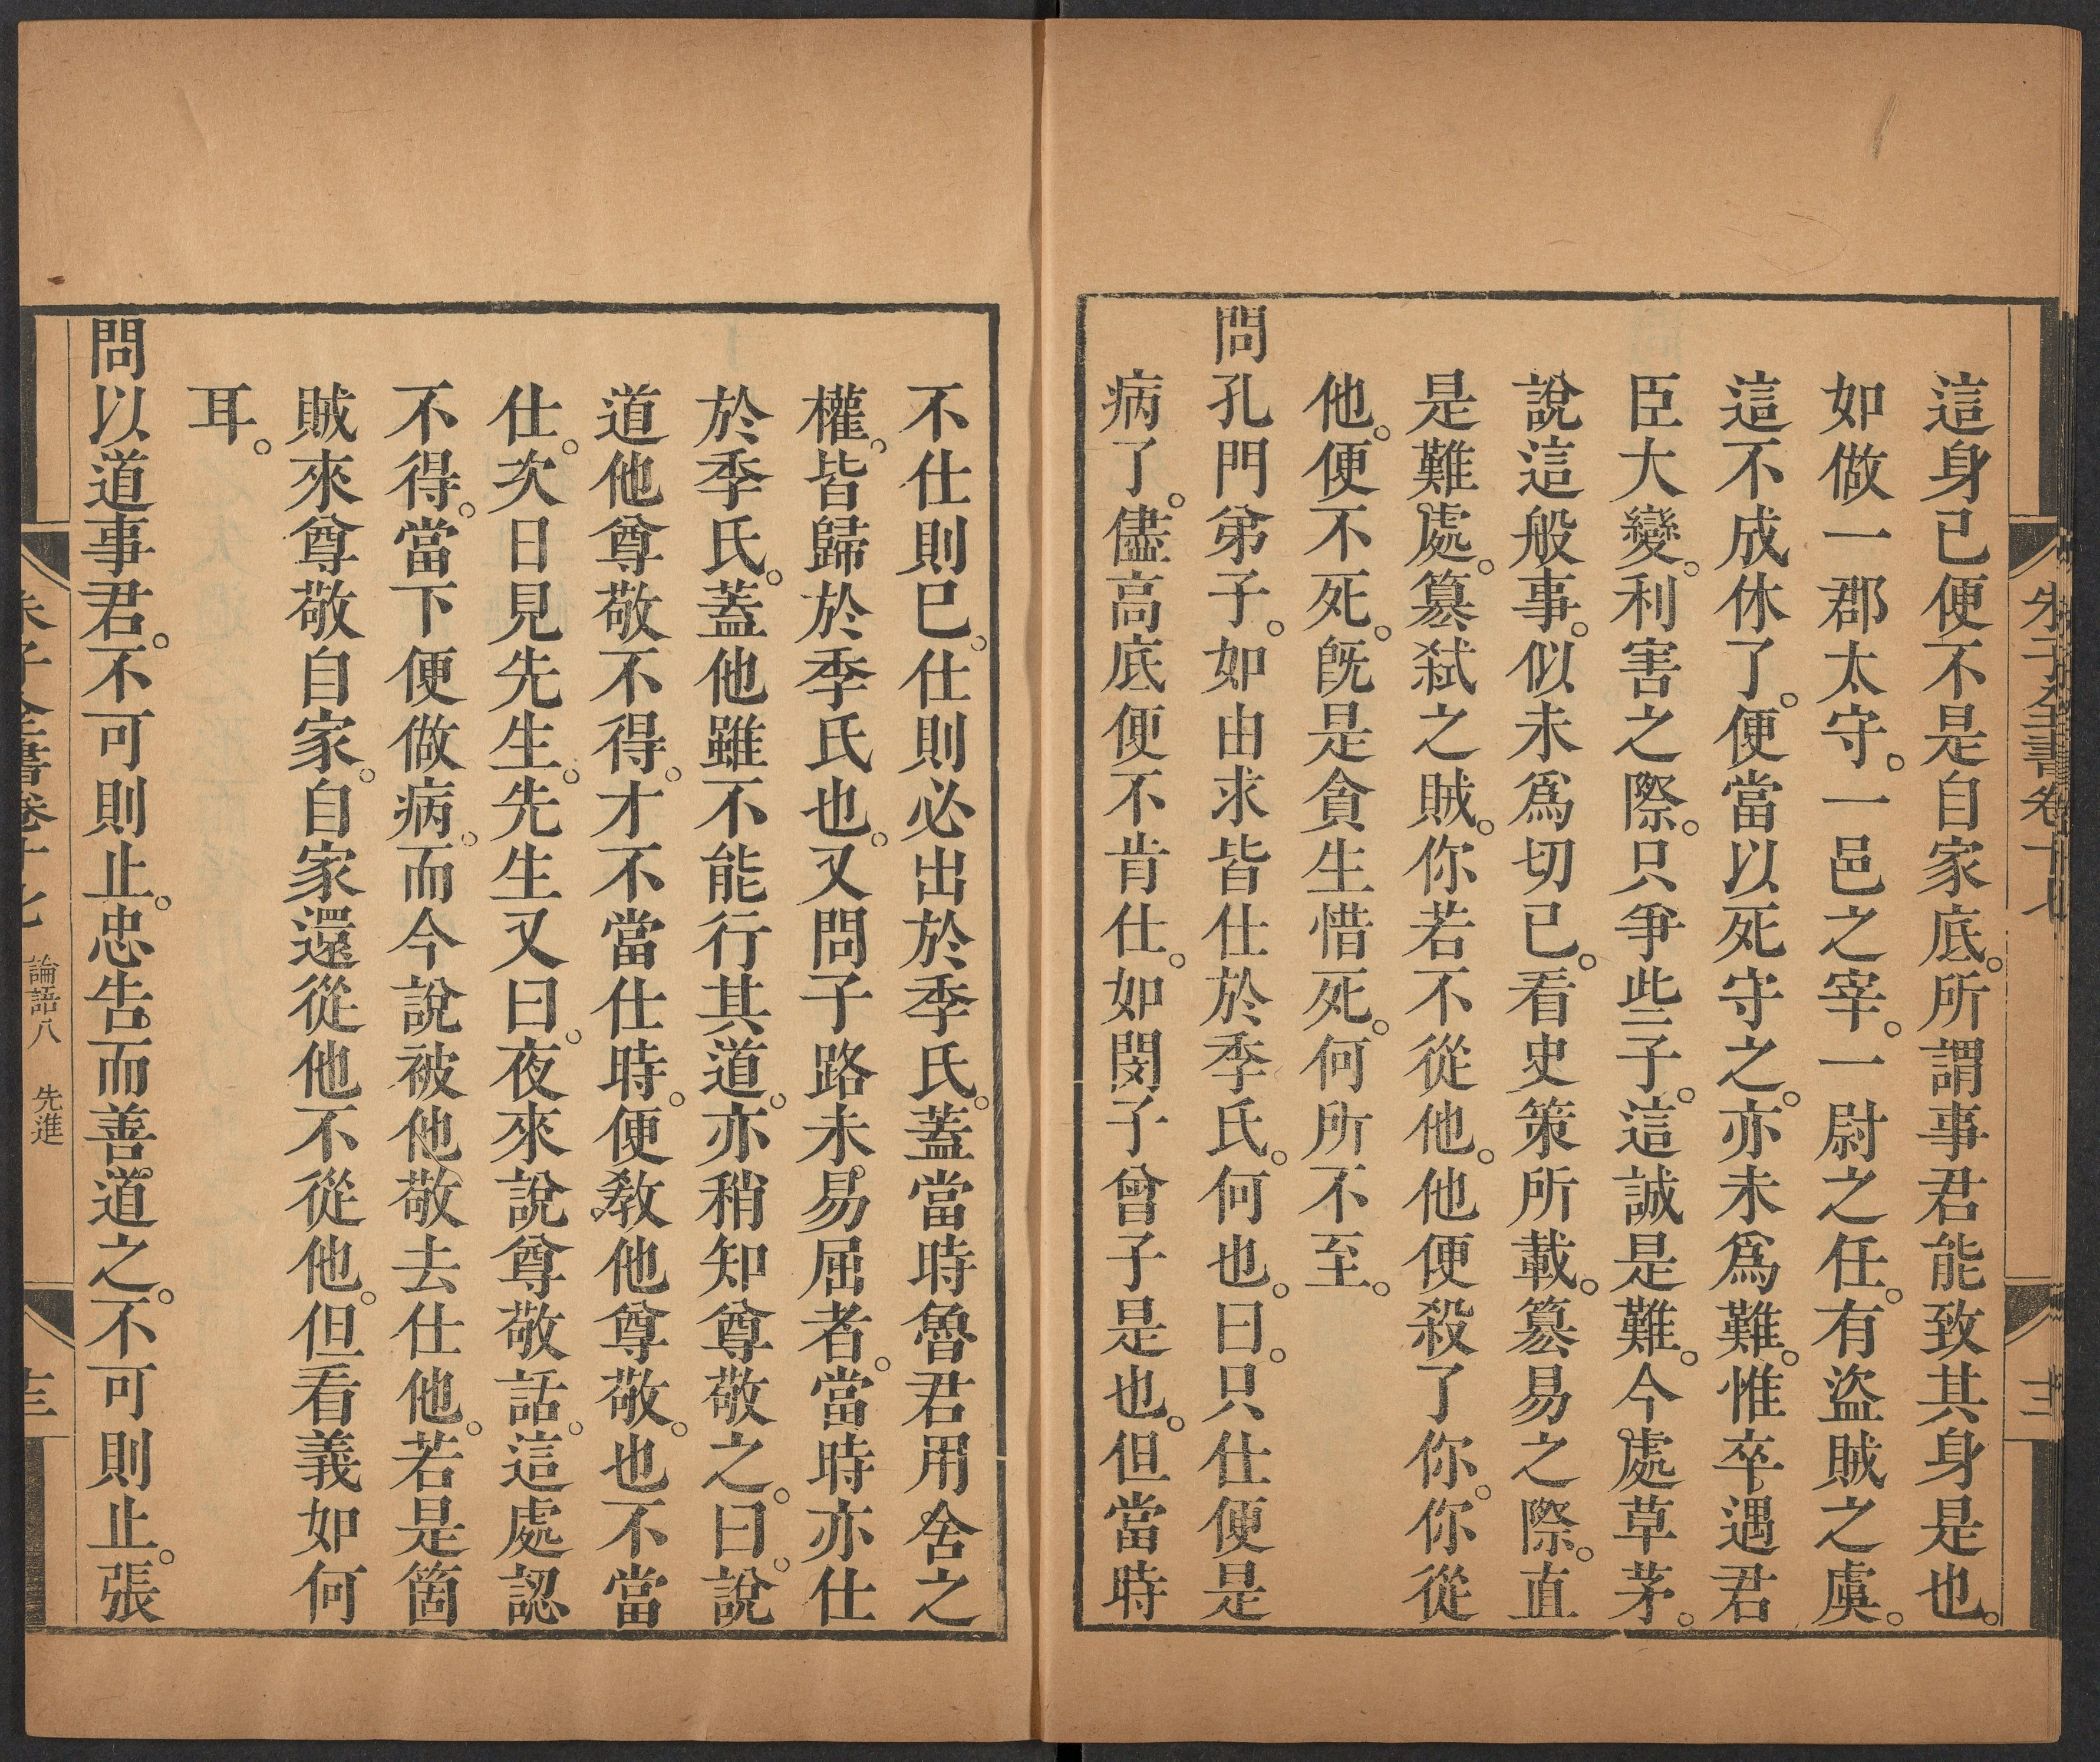 這身已便不是自家底。所謂事君能致其身是也。
如做一郡太守。一邑之宰。一尉之任。有盜賊之虞。
這不成休了。便當以死守之。亦未爲難。惟卒遇君
臣大變。利害之際。只爭些子。這誠是難。今處草茅。
說這般事。似未爲切已。看史策所載。篡易之際。直
是難處。篡弒之賊。你若不從他。他便殺了你。你從
他。便不死。旣是貪生惜死。何所不至。
問孔門弟子。如由求皆仕於季氏。何也。曰。只仕便是
病了。儘高底便不肯仕。如閔子曾子是也。但當時
不仕則已。仕則必出於季氏。蓋當時魯君用舍之
權。皆歸於季氏也。又問子路未易屈者。當時亦仕
於季氏。蓋他雖不能行其道。亦稍知尊敬之。曰。說
道他尊敬不得。才不當仕時。便教他尊敬。也不當
仕。次日見先生。先生又曰。夜來說尊敬話。這處認
不得。當下便做病。而今說被他敬去仕他。若是箇
賊來尊敬自家。自家還從他不從他。但看義如何
耳。
問以道事君。不可則止。忠告而善道之。不可則止。張
朱子全書卷十七 論語八 先進